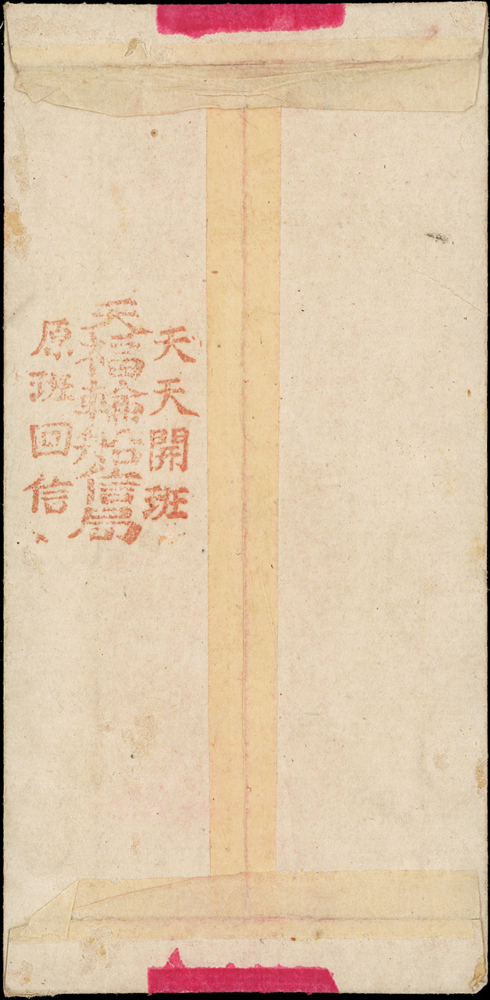 天天開班
天福輪船信局
原班回信